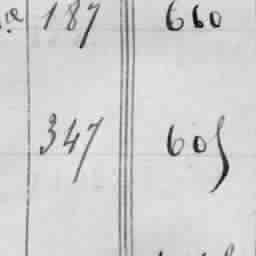 187 660
347 605